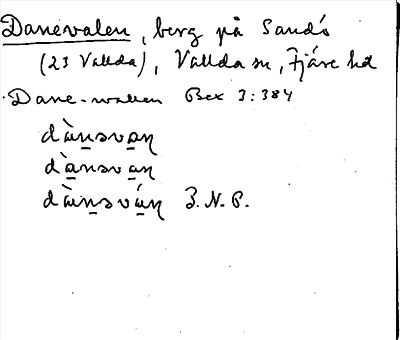 Danevalen, berg på Sandö
(23 Vallda), Vallda sn, Fjäre hd
Dane-wallen Bex 3:384
dànəvaɳ
dànəvaɳ
dànəváɳ J.N.P.